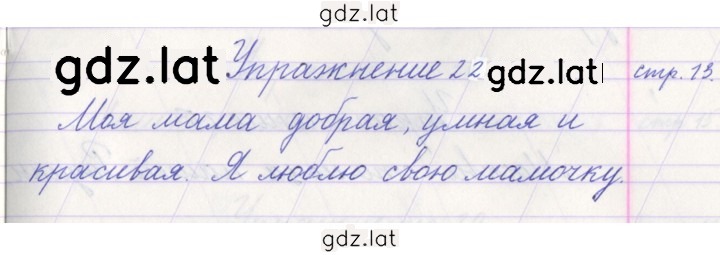 gdz.lat
gdz.lat Упражнение 22 gdz.lat стр. 13.
Моя мама добрая, умная и
красивая. Я люблю свою мамочку.
gdz.lat